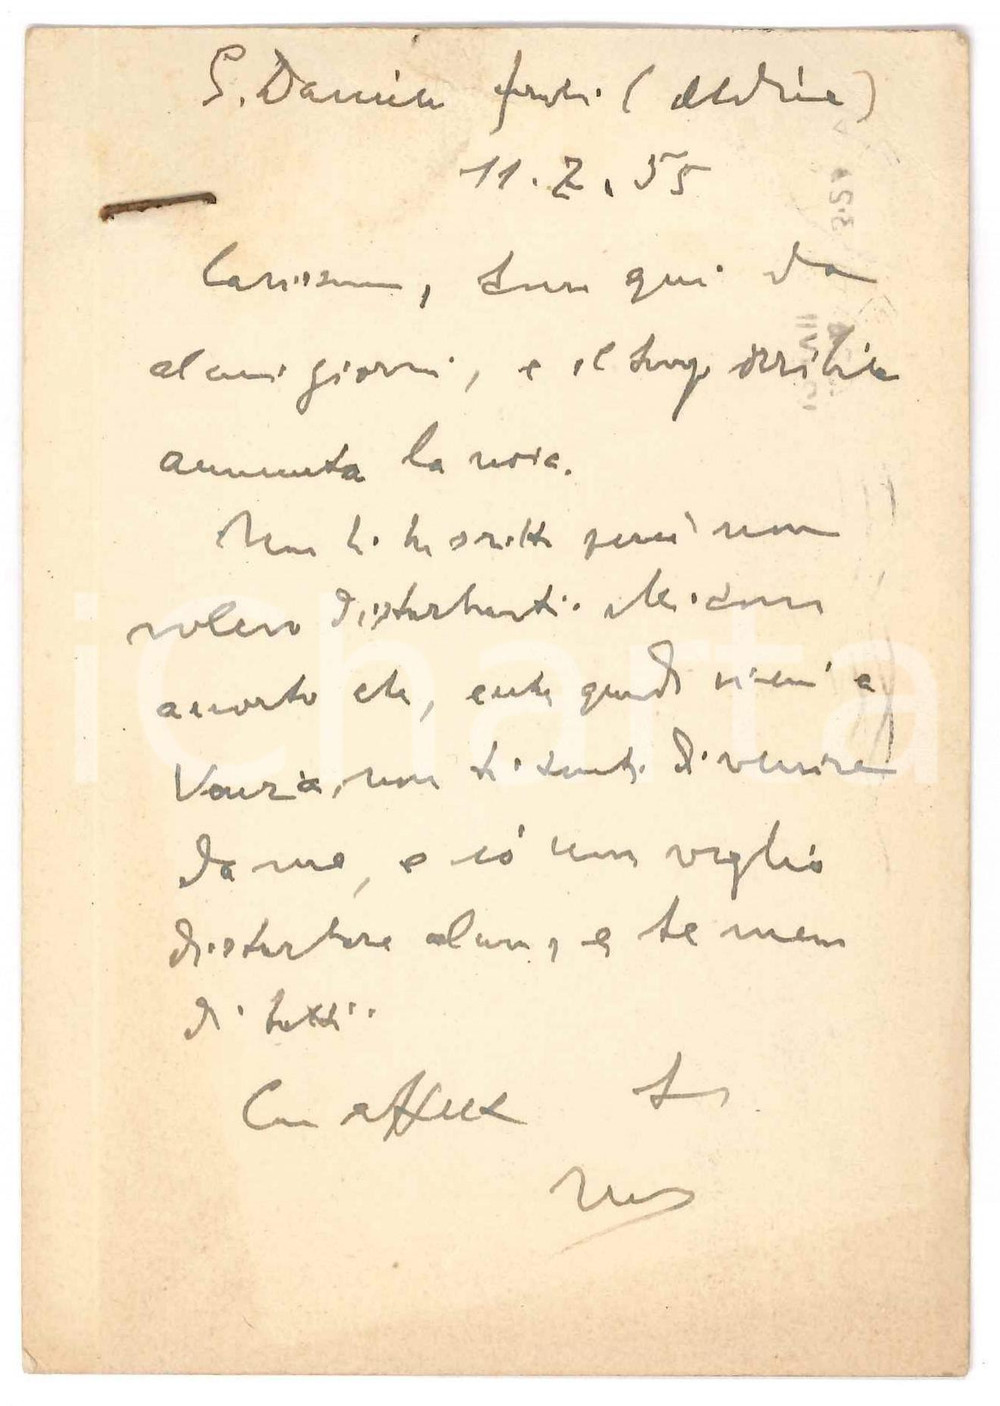 S. Daniele friuli (Udine)
11.7.55
Carissimo, sono qui da
alcuni giorni, e il tempo orribile
aumenta la noia.
Non ti ho scritto perché non
volevo disturbarti. Mi sono
accorto che, quando vieni a
Venezia, non ti senti di venire
da me, e io non voglio
disturbare alcuno, e te meno
di tutti.
Con affetto
iCharta